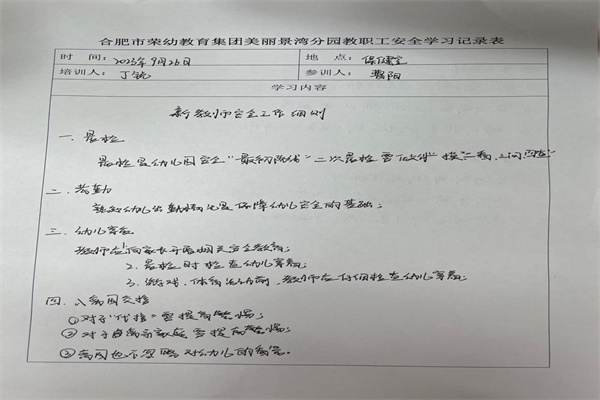 合肥市荣幼教育集团美丽景湾分园教职工安全学习记录表
时 间: 2023年9月26日 地 点: 保健室
培训人: 丁 参训人:
学习内容
新教师安全工作细则
一、晨检
晨检是幼儿园安全"最初防线"二次晨检要做到"一摸二看、三问
二、考勤
幼儿出勤情况是保障幼儿安全的基础;
三、幼儿穿衣
教师应1向家长开展相关安全教育;
2.晨检时检查幼儿穿着;
3.游戏、体育活动前,教师应仔细检查幼儿穿着;
四、入离园交接
①对于"代接"要提高警惕;
②对于自离 要提高警惕;
③离园也不忽略对幼儿的